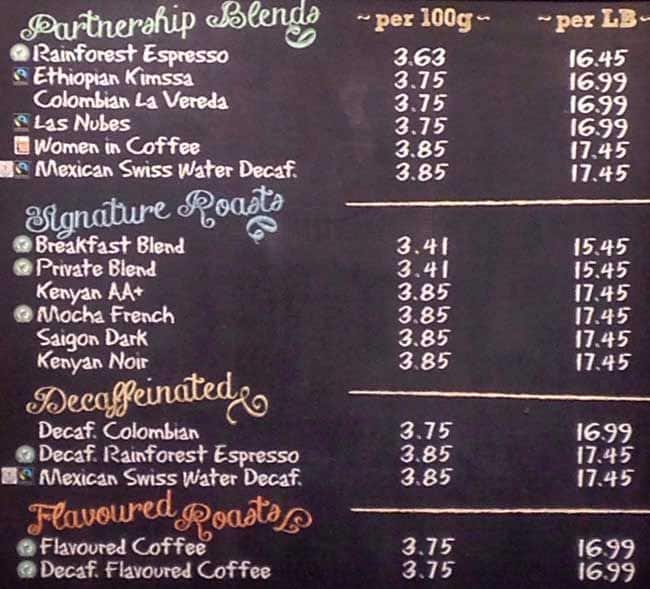 Partnership Blends ~per 100g~ ~per LB~
Rainforest Espresso 3.63 16.45
Ethiopian Kimssa 3.75 16.99
Colombian La Vereda 3.75 16.99
Las Nubes 3.75 16.99
Women in Coffee 3.85 17.45
Mexican Swiss Water Decaf. 3.85 17.45
Signature Roasts
Breakfast Blend 3.41 15.45
Private Blend 3.41 15.45
Kenyan AA+ 3.85 17.45
Mocha French 3.85 17.45
Saigon Dark 3.85 17.45
Kenyan Noir 3.85 17.45
Decaffeinated
Decaf. Colombian 3.75 16.99
Decaf. Rainforest Espresso 3.85 17.45
Mexican Swiss Water Decaf. 3.85 17.45
Flavoured Roasts
Flavoured Coffee 3.75 16.99
Decaf. Flavoured Coffee 3.75 16.99